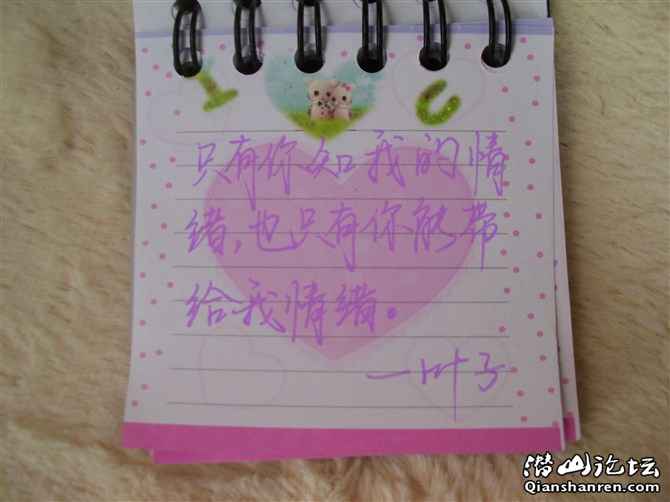 I U
只有你知我的情
绪,也只有你能带
给我情绪。
—叶子
潜山论坛
Qianshanren.com